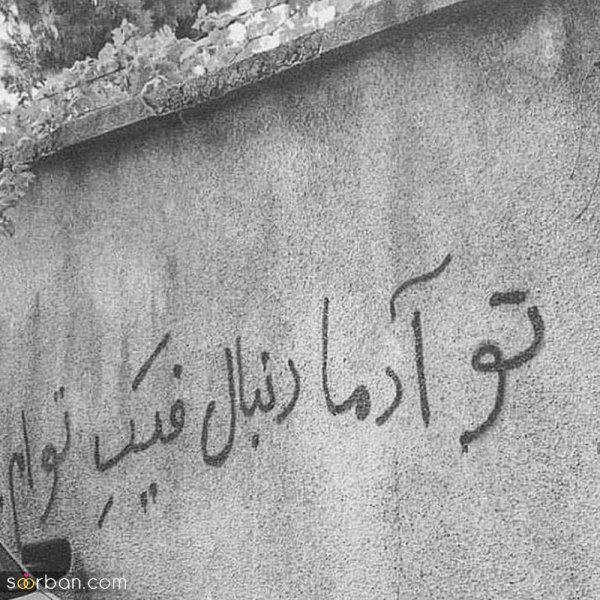 تو آدما دنبال فیکِ توام
soorban.com